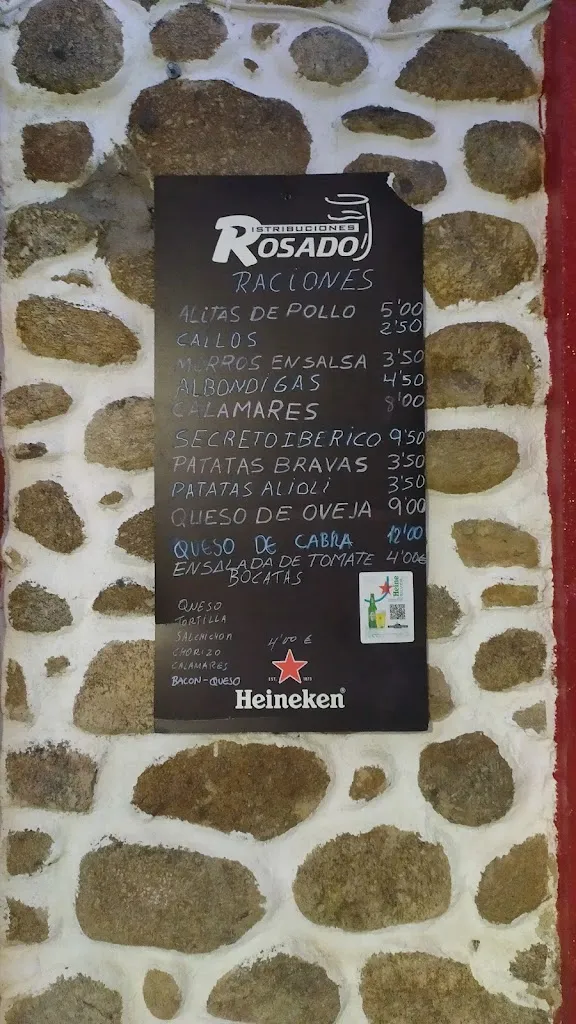 DISTRIBUCIONES
ROSADO
RACIONES
ALITAS DE POLLO 5'00
CALLOS 2'50
MORROS EN SALSA 3'50
ALBONDIGAS 4'50
CALAMARES 8'00
SECRETO IBERICO 9'50
PATATAS BRAVAS 3'50
PATATAS ALIOLI 3'50
QUESO DE OVEJA 9'00
QUESO DE CABRA 12'00
ENSALADA DE TOMATE 4'00€
BOCATAS
QUESO
TORTILLA
SALCHICHON 4'00 €
CHORIZO
CALAMARES
BACON-QUESO
EST. 1873
Heineken®
Heine